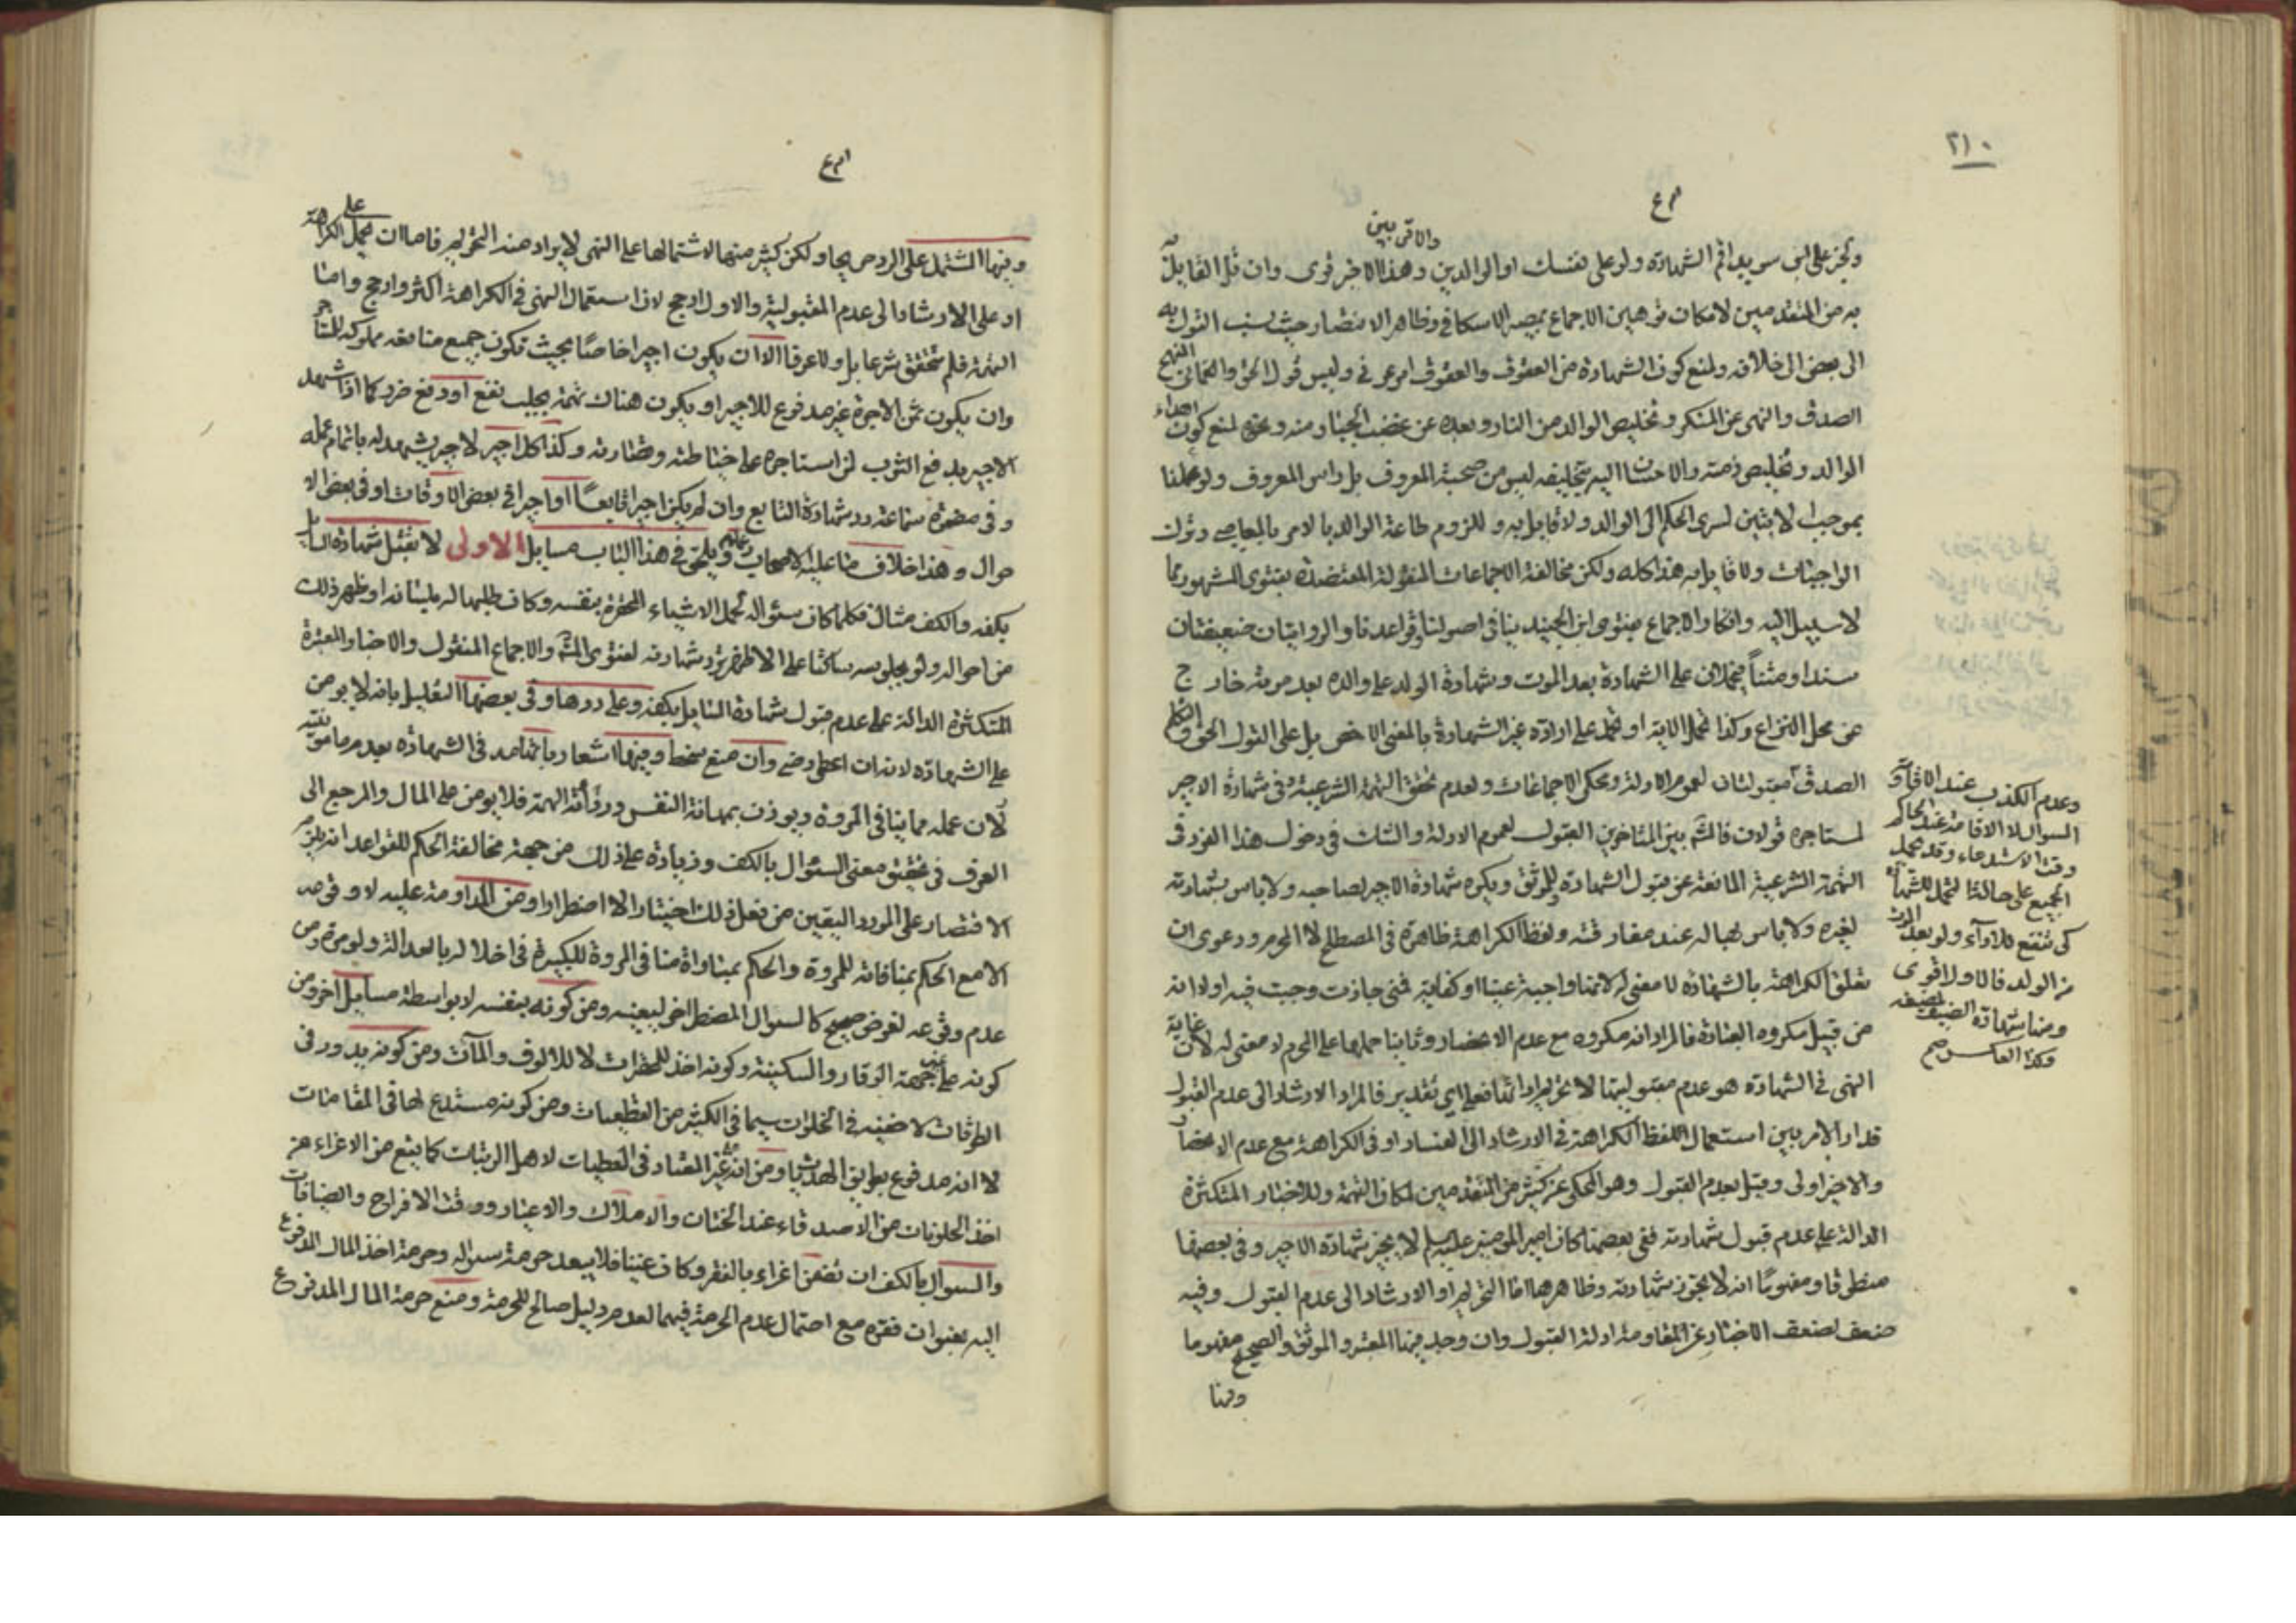 ٢١٠
ولخبر علي بن سويد اقم الشهادة ولو على نفسك او الوالدين والاقربين وهذا الاخير قوى وان قل القايل به
به من المتقدمين لامكان توهين الاجماع بمصير الاسكافي وظاهر الانتصار حيث نسب القول به
الى بعض الى خلافه ولمنع كون الشهادة من العقوق والعقوق امر عرفي وليس قول الحق
الصدق والنهى عن المنكر وتخليص الوالد من النار وبعده عن غضب الجبار منه وعنه لمنع كون
الوالد وتخليص ذمته والاحسان اليه بتخليصه ليس من صحبة المعروف بل راس المعروف ولو عملنا
بموجب لا يثبتن لسرى الحكم الى الوالد ولا قايل به وللزوم طاعة الوالد بالامر بالمعاصي وترك
الواجبات ولا قايل به هذا كله ولكن مخالفة الاجماعات المنقولة المعتضدة بفتوى المشهور مما
لا سبيل اليه وانكار الاجماع بفتوى ابن الجنيد ينافي اصولنا وقواعدنا والروايتان ضعيفتان
سندا ومتنا يحملان على الشهادة بعد الموت وشهادة الولد على والده بعد موته خارج
عن محل النزاع وكذا تحمل الاية او تحمل على ارادة غير الشهادة بالمعنى الاخص بل على القول الحق والتكلم
الصدق مقبولتان لعموم الادلة ومحكي الاجماعات ولعدم تحقق التهمة الشرعية وفي شهادة الاجير
لمستاجره قولان فالمشهور بين المتاخرين القبول لعموم الادلة والشك في دخول هذا الفرد في
التهمة الشرعية المانعة عن قبول الشهادة وللموثق ويكره شهادة الاجير لصاحبه ولا باس بشهادته
لغيره ولا باس بها له عند مفارقته ولفظ الكراهة ظاهرة في المصطلح لا المحرم ودعوى ان
تعلق الكراهة بالشهادة لا معنى له لانها واجبة عينا او كفاية فمتى جازت وجبت فيه اولا انه
من قبيل مكروه العبادة فالمراد انه مكروه مع عدم الانحصار وثانيا حملها على المحرم لا معنى له لان غاية
النهى في الشهادة هو عدم مقبوليتها لا تحريم ادائها فعلى اي تقدير فالمراد الارشاد الى عدم القبول
فدار الامر بين استعمال لفظ الكراهة في الارشاد الى الفساد او في الكراهة مع عدم الانحصار
والاخير اولى وقيل بعدم القبول وهو المحكي عن كثير من المتقدمين لمكان التهمة وللاخبار المتكثرة
الدالة على عدم قبول شهادته ففي بعضها كان امير المومنين عليه السلم لا يجيز شهادة الاجير وفي بعضها
منطوقا ومفهوما انه لا تجوز شهادته وظاهرها اما التحريم او الارشاد الى عدم القبول وفيه
ضعف لضعف الاخبار عن المقاومة ادلة القبول وان وجد فيها المعتبر والموثق والصحيح مفهوما
ومنها
وعدم الكذب عند
السوال لا الاقامة عند الحاكم
وقت الاستدعاء وقد يحمل
الجميع على حالة تحمل الشهادة
كي تنفع للاداء ولو بعد
من الولد فالاول اقوى
ومنها شهادة الضيف لمضيفه
وكذا العكس صح
وفيها المشتمل على الرد صريحا ولكن كثير منها لاشتمالها على النهى لا يراد منه التحريم فاما ان يحمل على الكراهة
او على الارشاد الى عدم المقبولية والاول ارجح لان استعمال النهى في الكراهة اكثر وارجح واما
التهمة فلم تتحقق شرعا بل ولا عرفا الا ان يكون اجيرا خاصا بحيث تكون جميع منافعه مملوكة للمستاجر
وان يكون ثمن الاجرة غير مدفوع للاجير او يكون هناك تهمة بجلب نفع او دفع ضرر كما اذا شهد
الاجير بدفع الثوب لمن استاجره على خياطته وقصارته وكذا كل اجير لاجير يشهد له باتمام عمله
وفي مضمرة سماعة رد شهادة التابع وان لم يكن اجيرا تابعا او اجيرا في بعض الاوقات او في بعض الا
حوال وهذا خلاف ما عليه الاصحاب ويلحق في هذا الباب مسايل الاولى لا تقبل شهادة السايل
بكفه والكف مثال فكلما كان سئواله لحمل الاشياء المحقرة بنفسه وكان طلبها له بلسانه او ظهر ذلك
من احواله ولو بجلوسه ساكتا على الاظهر ترد شهادته لفتوى المشهور والاجماع المنقول والاخبار المعتبرة
المتكثرة الدالة على عدم قبول شهادة السايل بكفه وعلى ردها وفي بعضها التعليل بانه لا يومن
على الشهادة لانه ان اعطى رضي وان منع سخط وفيها اشعار بانه في الشهادة بعدم مامونيته
لان عمله مما ينافي المروة ويوذن بمهانة النفس ودنائة الهمة فلا يومن على المال والمرجع الى
العرف في تحقيق معنى السئوال بالكف وزيادة على ذلك من جهة مخالفة الحكم للقواعد انه يلزم
الاقتصار على المورد اليقين من فعل ذلك اختيارا لا اضطرارا ومن المداومة عليه لا وقوعه
الا مع الحكم بمنافاته للمروة والحكم بمساواة منافي المروة للكبيرة في اخلاله بالعدالة ولو مرة ومن
عدم وقوعه لغرض صحيح كالسوال المضطر اخر ليعينه ومن كونه بنفسه لا بواسطة مسايل اخر ومن
كونه على غير جهة الوقار والسكينة وكونه اخذ للمحقرات لا للالوف والمآت ومن كونه يدور في
الطرقات لا ضيفه في الخلوات سيما في الكثير من العظيمات ومن كونه مستدع لها في المقامات
لا انه مدفوع بطريق الهدايا ومن انه غير المعتاد في العطيات لاهل الرتبات كما يقع من الاغراء من
اخذ الحلويات من الاصدقاء عند الختان والاملاك والاعياد ووقت الافراح والضيافات
والسوال بالكف ان تضمن اغراء بالفقر وكان غنيا فلا يبعد حرمة سواله وحرمة اخذ المال المدفوع
اليه بعنوان فقره مع احتمال عدم الحرمة فيهما لعدم دليل صالح للحرمة ومنع حرمة المال المدفوع